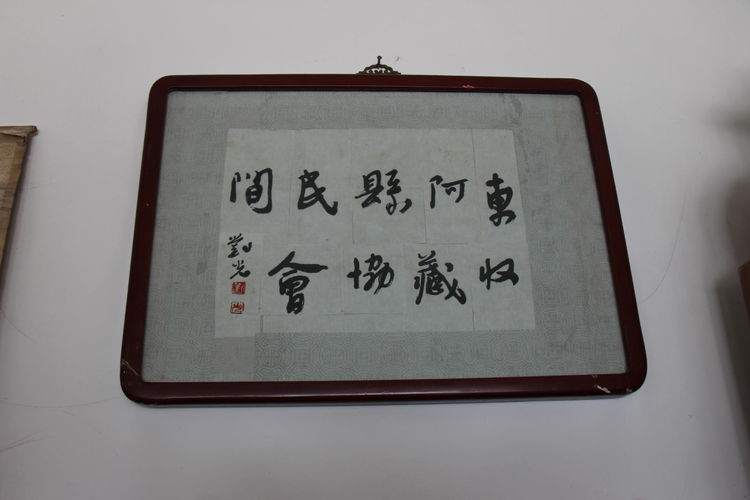 東阿縣民間
收藏協會
對光